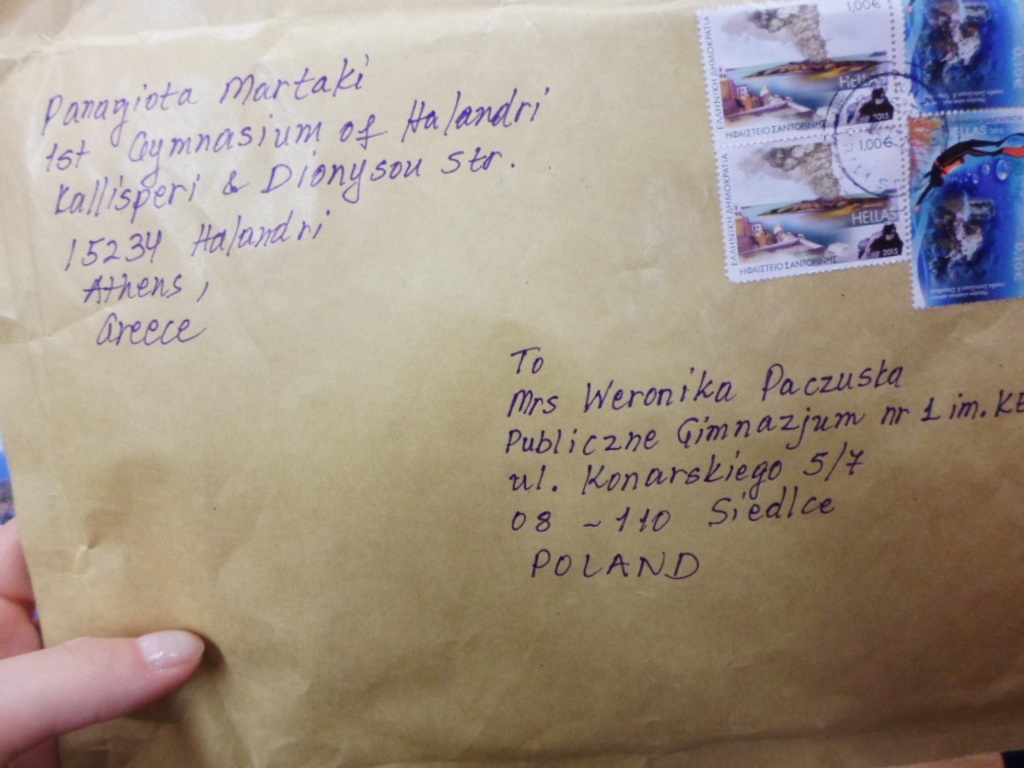 Panagiota Martaki
1st Gymnasium of Halandri
Kallisperi & Dionysou Str.
15234 Halandri
Athens,
Greece
1,00€
ΕΛΛΗΝΙΚΗ ΔΗΜΟΚΡΑΤΙΑ
HELLAS
2015
ΗΦΑΙΣΤΕΙΟ ΣΑΝΤΟΡΙΝΗΣ
1,00€
ΕΛΛΗΝΙΚΗ ΔΗΜΟΚΡΑΤΙΑ
HELLAS
2015
ΗΦΑΙΣΤΕΙΟ ΣΑΝΤΟΡΙΝΗΣ
HELLAS
To
Mrs Weronika Paczuska
Publiczne Gimnazjum nr 1 im. KE
ul. Konarskiego 5/7
08 - 110 Siedlce
POLAND